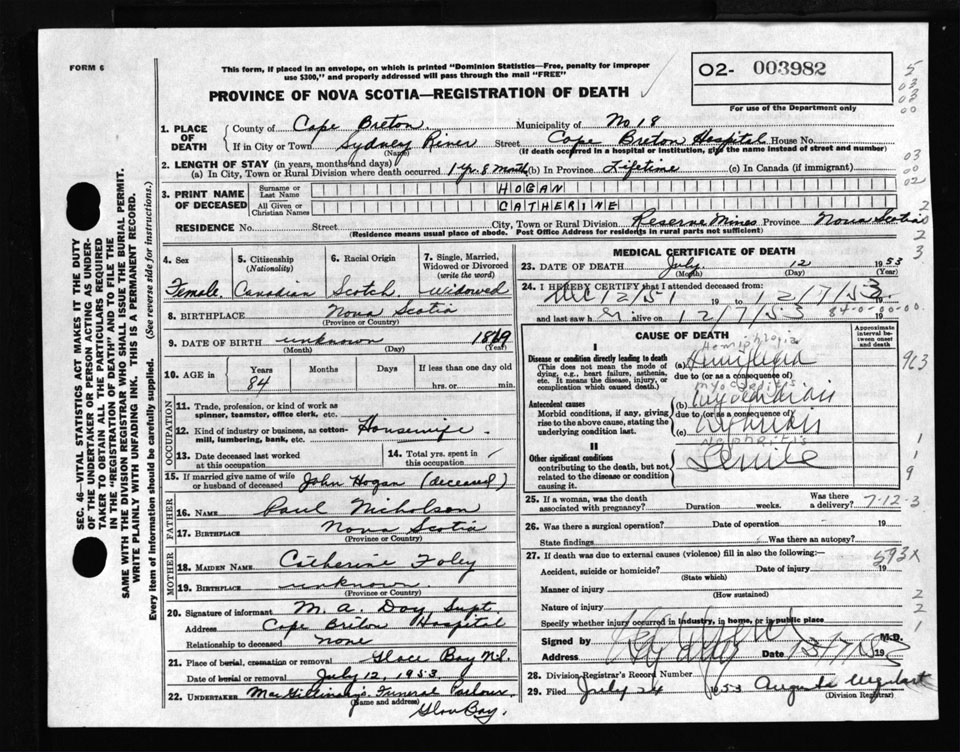 FORM 6
This form, if placed in an envelope, on which is printed "Dominion Statistics—Free, penalty for improper
use $300," and properly addressed will pass through the mail "FREE"
PROVINCE OF NOVA SCOTIA—REGISTRATION OF DEATH
02- 003982
For use of the Department only
5
03
03
00
1. PLACE OF DEATH
County of Cape Breton Municipality of No 18
If in City or Town Sydney River Street Cape Breton Hospital House No.
(Name) (If death occurred in a hospital or institution, give the name instead of street and number)
2. LENGTH OF STAY (in years, months and days)
(a) In City, Town or Rural Division where death occurred 1 yr. 8 month (b) In Province Lifetime (c) In Canada (if immigrant)
03
00
02
3. PRINT NAME OF DECEASED
Surname or Last Name HOGAN
All Given or Christian Names CATHERINE
RESIDENCE No. Street City, Town or Rural Division Reserve Mines Province Nova Scotia
(Residence means usual place of abode. Post Office Address for residents in rural parts not sufficient)
2
2
3
SEC. 46—VITAL STATISTICS ACT MAKES IT THE DUTY
OF THE UNDERTAKER OR PERSON ACTING AS UNDER-
TAKER TO OBTAIN ALL THE PARTICULARS REQUIRED
IN THE "REGISTRATION OF DEATH" AND TO FILE THE
SAME WITH THE DIVISION REGISTRAR WHO SHALL ISSUE THE BURIAL PERMIT.
WRITE PLAINLY WITH UNFADING INK. THIS IS A PERMANENT RECORD.
Every item of information should be carefully supplied. (See reverse side for instructions.)
4. Sex Female
5. Citizenship (Nationality) Canadian
6. Racial Origin Scotch
7. Single, Married, Widowed or Divorced (write the word) Widowed
8. BIRTHPLACE Nova Scotia
(Province or Country)
9. DATE OF BIRTH unknown 1869
(Month) (Day) (Year)
10. AGE in Years 84 Months Days If less than one day
hrs. or min.
OCCUPATION
11. Trade, profession, or kind of work as
spinner, teamster, office clerk, etc.
12. Kind of industry or business, as cotton-
mill, lumbering, bank, etc. Housewife
13. Date deceased last worked
at this occupation
14. Total yrs. spent in
this occupation
15. If married give name of wife
or husband of deceased John Hogan (deceased)
FATHER
16. NAME Paul Nicholson
17. BIRTHPLACE Nova Scotia
(Province or Country)
MOTHER
18. MAIDEN NAME Catherine Foley
19. BIRTHPLACE unknown
(Province or Country)
20. Signature of informant M. A. Doy, Supt.
Address Cape Breton Hospital
Relationship to deceased none
21. Place of burial, cremation or removal Glace Bay N.S.
Date of burial or removal July 12, 1953
22. UNDERTAKER Funeral Parlour
(Name and address)
Glace Bay.
MEDICAL CERTIFICATE OF DEATH
23. DATE OF DEATH July 12 1953
(Month) (Day) (Year)
24. I HEREBY CERTIFY that I attended deceased from:
Dec 12/51 19 to 12/7/53 19
and last saw her alive on 12/7/53 19
84-0-00-00.
CAUSE OF DEATH
Approximate interval between onset and death
I
Disease or condition directly leading to death
(This does not mean the mode of
dying, e.g., heart failure, asthenia,
etc. It means the disease, injury, or
complication which caused death.)
Hemiplegia
(a) Hemiplegia
due to (or as a consequence of)
Antecedent causes
Morbid conditions, if any, giving
rise to the above cause, stating the
underlying condition last.
myocarditis
(b) myocarditis
due to (or as a consequence of)
(c) nephritis
nephritis
II
Other significant conditions
contributing to the death, but not
related to the disease or condition
causing it.
Senile
1
1
9
25. If a woman, was the death
associated with pregnancy? Duration weeks. Was there
a delivery?
7-12-3
26. Was there a surgical operation? Date of operation 19
State findings Was there an autopsy?
27. If death was due to external causes (violence) fill in also the following:
593X
Accident, suicide or homicide? Date of injury 19
(State which)
Manner of injury
(How sustained)
Nature of injury
2
2
Specify whether injury occurred in industry, in home, or in public place
1
Signed by M.D.
Address Date 13/7/1953
28. Division Registrar's Record Number
29. Filed July 24 1953 Urquhart
(Division Registrar)